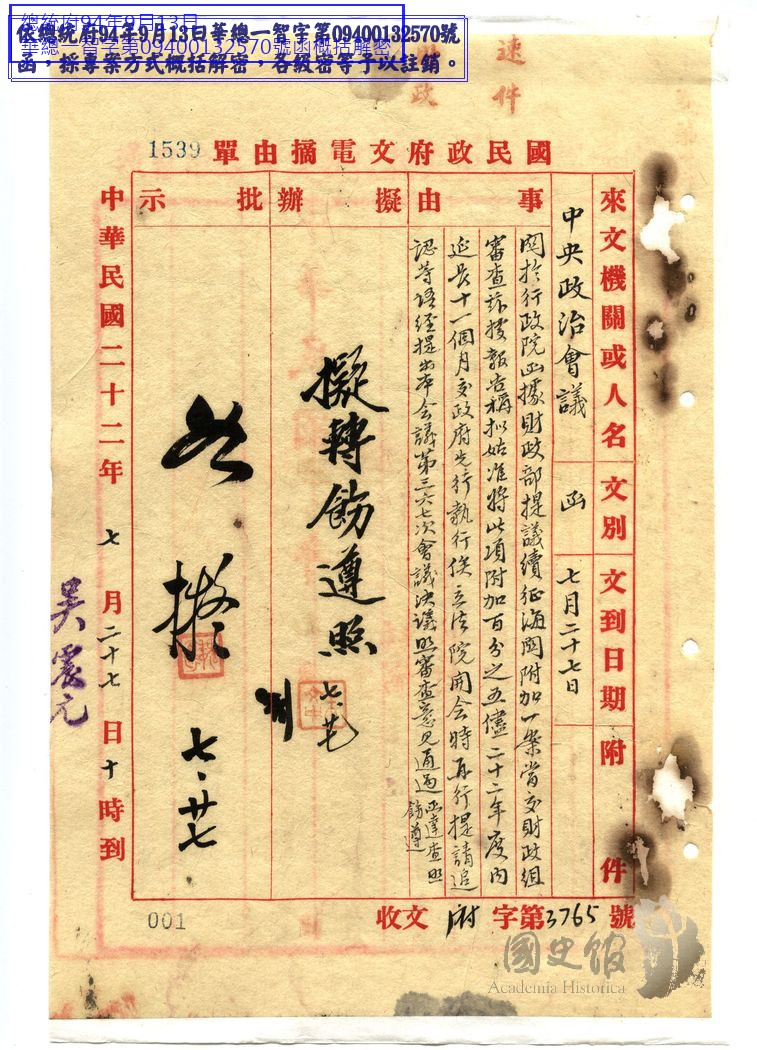 總統府94年9月13日
華總一智字第09400132570號函概括解密
依總統府94年9月13日華總一智字第09400132570號
函，採專案方式概括解密，各級密等予以註銷。
速件
財政
國民政府文電摘由單
1539
來文機關或人名
中央政治會議
文別
函
文到日期
七月二十七日
附件
事由
關於行政院函據財政部提議續征海關附加一案當交財政組
審查茲據報告稱擬姑准將此項附加百分之五儘二十二年度內
延長十一個月交政府先行執行俟立法院開會時再行提請追
認等語經提出本會議第三六七次會議決議照審查意見通過函達查照
飭遵
擬辦
擬轉飭遵照
七、廿七
批示
如擬
七、廿七
中華民國二十二年七月二十七日十時到
吳震元
收文府字第3765號
001
國史館
Academia Historica